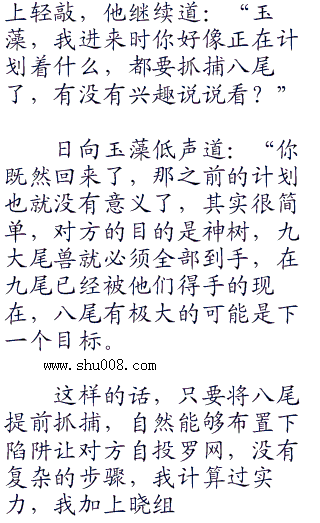 上轻敲，他继续道：“玉
藻，我进来时你好像正在计
划着什么，都要抓捕八尾
了，有没有兴趣说说看？”
日向玉藻低声道：“你
既然回来了，那之前的计划
也就没有意义了，其实很简
单，对方的目的是神树，九
大尾兽就必须全部到手，在
九尾已经被他们得手的现
在，八尾有极大的可能是下
一个目标。
www.shu008.com
这样的话，只要将八尾
提前抓捕，自然能够布置下
陷阱让对方自投罗网，没有
复杂的步骤，我计算过实
力，我加上晓组